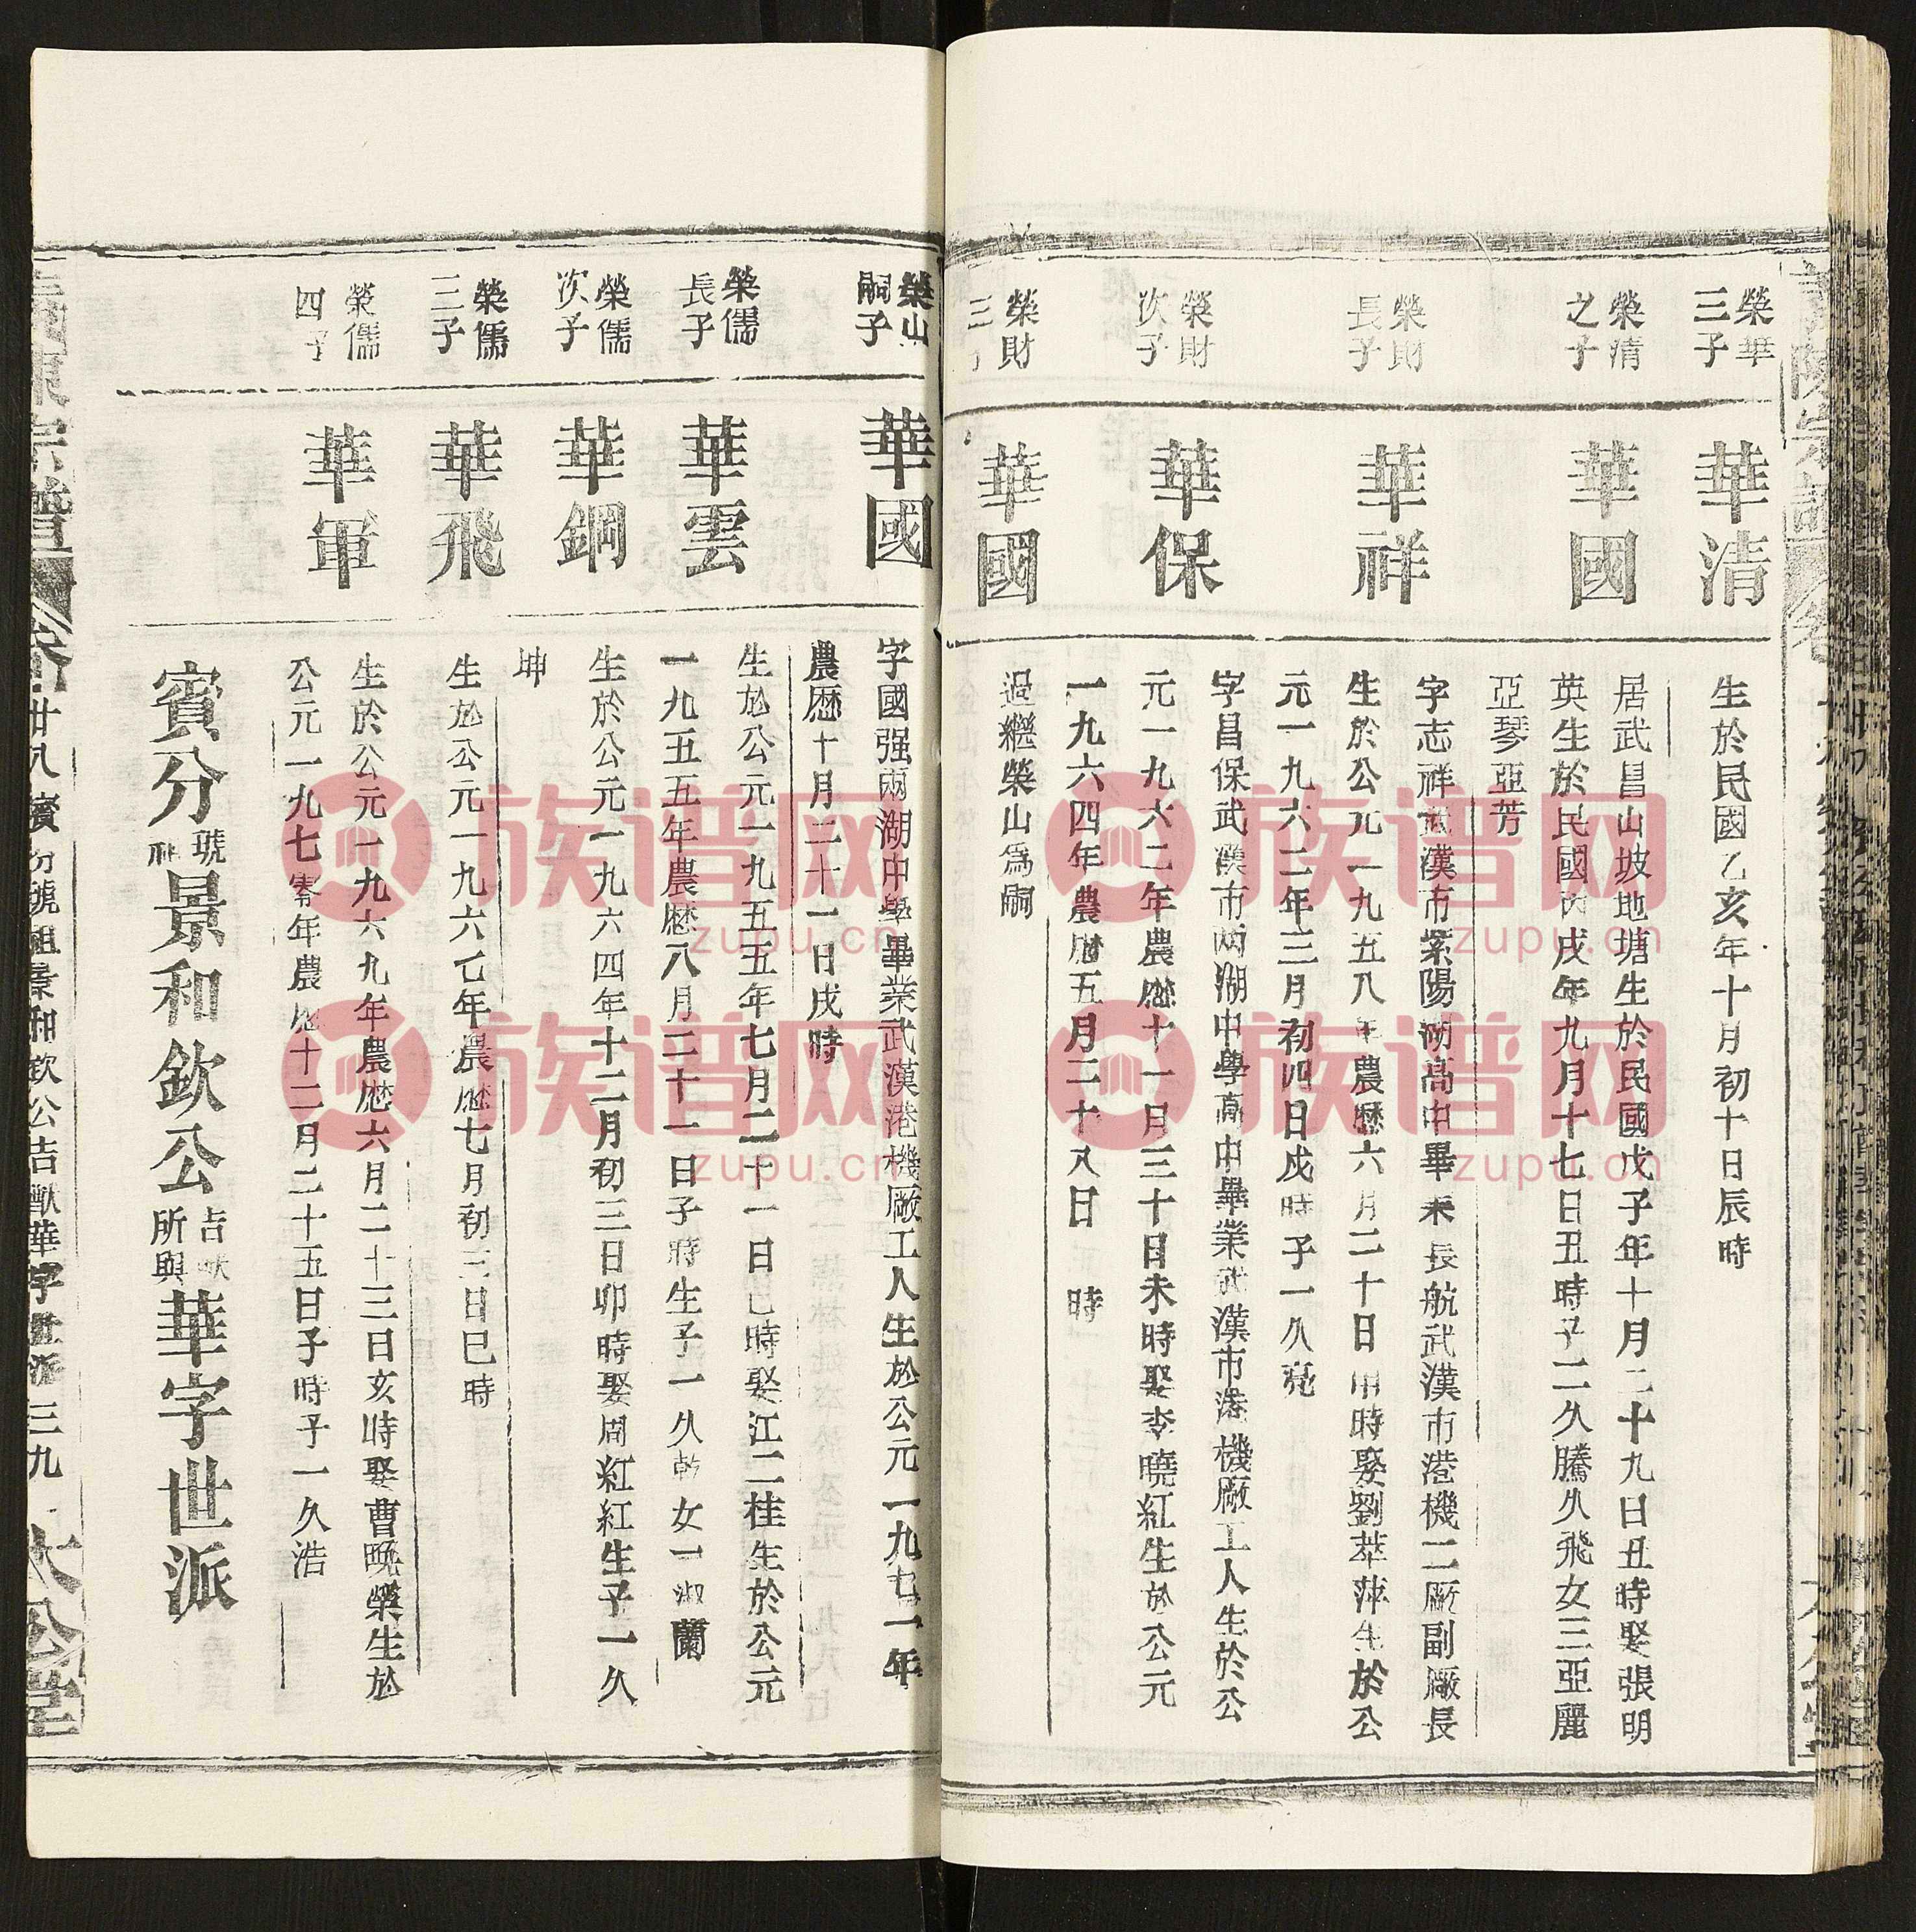 榮華
三子
華清
生於民國乙亥年十月初十日辰時
榮清
之子
華國
居武昌山坡地塘生於民國戊子年十月二十九日丑時娶張明
英生於民國丙戌年九月十七日丑時子二久騰久飛女三亞麗
亞琴亞芳
榮財
長子
華祥
字志祥武漢市紫陽湖高中畢業長航武漢市港機二廠副廠長
生於公元一九五八年農歷六月二十日 時娶劉萃萍生於公
元一九六二年三月初四日戌時子一久亮
榮財
次子
華保
字昌保武漢市两湖中學高中畢業武漢市港機廠工人生於公
元一九六二年農歷十一月三十日未時娶李曉紅生於公元
一九六四年農歷五月二十八日 時
榮財
三
華國
過繼榮山爲嗣
榮山
嗣子
華國
字國强兩湖中學畢業武漢港機廠工人生於公元一九七一年
農歷十月二十一日戌時
榮儒
長子
華雲
生於公元一九五五年七月二十一日巳時娶江二桂生於公元
一九五五年農歷八月二十一日子時生子一久乾女一淑蘭
榮儒
次子
華鋼
生於公元一九六四年十二月初三日卯時娶周紅紅生子一久
坤
榮儒
三子
華飛
生於公元一九六七年農歷七月初三日巳時
榮儒
四子
華軍
生於公元一九六九年農歷六月二十三日亥時娶曹晚榮生於
公元一九七零年農歷十二月二十五日子時子一久浩
賓分號祖景和欽公吉猷所與華字世派
宗譜 卷廿八 賓分號祖景和欽公吉猷華字世派 三九 太公堂
族谱网
zupu.cn
族谱网
zupu.cn
族谱网
zupu.cn
族谱网
zupu.cn